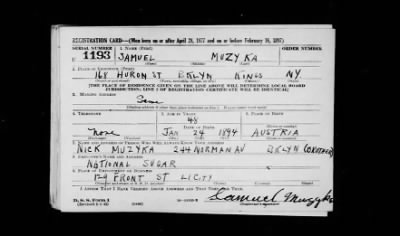 REGISTRATION CARD—(Men born on or after April 28, 1877 and on or before February 16, 1897)
SERIAL NUMBER 1. NAME (Print) ORDER NUMBER
U 1193 SAMUEL MUZYKA
2. PLACE OF RESIDENCE (Print)
168 HURON ST BKLYN KINGS N.Y.
[THE PLACE OF RESIDENCE GIVEN ON THE LINE ABOVE WILL DETERMINE LOCAL BOARD
JURISDICTION; LINE 2 OF REGISTRATION CERTIFICATE WILL BE IDENTICAL]
3. MAILING ADDRESS
Same
4. TELEPHONE 5. AGE IN YEARS 6. PLACE OF BIRTH
48
DATE OF BIRTH
None JAN 24 1894 AUSTRIA
7. NAME AND ADDRESS OF PERSON WHO WILL ALWAYS KNOW YOUR ADDRESS
NICK MUZYKA 244 NORMAN AV BKLYN
8. EMPLOYER'S NAME AND ADDRESS
NATIONAL SUGAR
9. PLACE OF EMPLOYMENT OR BUSINESS
129 FRONT ST L.I.CITY
I AFFIRM THAT I HAVE VERIFIED ABOVE ANSWERS AND THAT THEY ARE TRUE.
D. S. S. Form 1
Samuel Muzyka